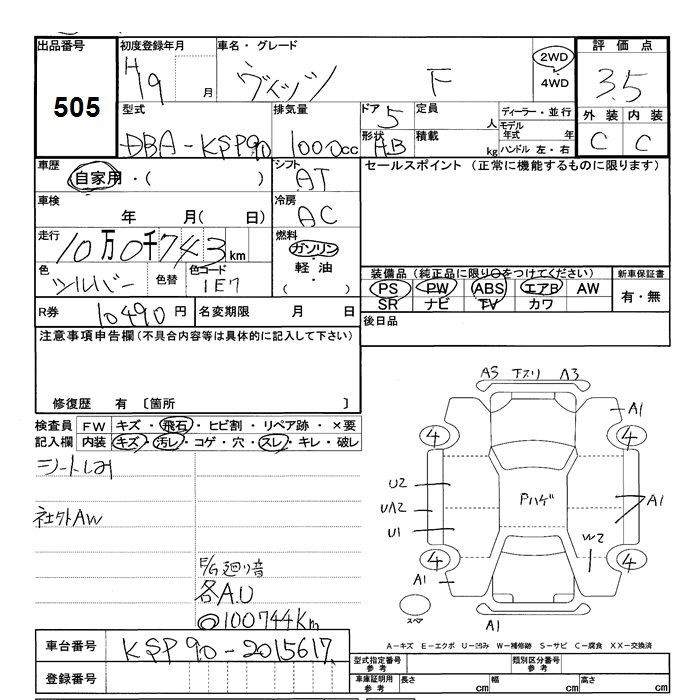 出品番号 初度登録年月 車名・グレード 評価点
505 H19 月 ヴィッツ F 2WD 4WD 3.5
型式 排気量 ドア 定員 ディーラー・並行 外装 内装
DBA-KSP90 1000cc 5 人 モデル年式 年 C C
形状 AB 積載 kg ハンドル 左・右
車歴 シフト セールスポイント (正常に機能するものに限ります)
自家用・( ) AT
車検 冷房
年 月( 日) AC
走行 燃料
10万0千743km ガソリン
色 色替 色コード 軽油 装備品 (純正品に限り○をつけてください) 新車保証書
シルバー 1E7 ( ) PS PW ABS エアB AW 有・無
SR ナビ TV カワ
R券 10490円 名変期限 月 日 後日品
注意事項申告欄 (不具合内容等は具体的に記入して下さい)
修復歴 有 〔箇所 〕
検査員 FW キズ・飛石・ヒビ割・リペア跡・×要
記入欄 内装 キズ・汚レ・コゲ・穴・スレ・キレ・破レ
社外AW
E/G廻り音
各A.U
◎100744Km
A3 下スリ A3
A1
4 4
U2
UA2 Pハゲ A1
U1
W2
4 4
A1
スペア
A1
A-キズ E-エクボ U-凹み W-補修跡 S-サビ C-腐食 XX-交換済
車台番号 KSP90-2015617
型式指定番号 参考 類別区分番号 参考
登録番号
車庫証明用 参考 長さ cm 幅 cm 高さ cm